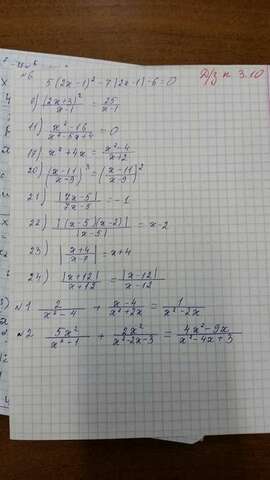 №6 5(2x-1)²-7(2x-1)-6=0
Д/з п 3.10
9) (2x+3)²/(x-1) = 25/(x-1)
11) (x²-16)/(x²-5x+4) = 0
17) x²+4x = (x²-4)/(x+2)
20) ((x-11)/(x-9))³ = ((x-11)/(x-9))²
21) |7x-5|/(7x-5) = -1
22) |(x-5)(x-2)|/|x-5| = x-2
23) |(x+4)/(x-7)| = x+4
24) |x+12|/(x+12) = |x-12|/(x-12)
№1 2/(x²-4) + (x-4)/(x²+2x) = 1/(x²-2x)
№2 5x²/(x²-1) + 2x²/(x²-2x-3) = (4x²-9x)/(x²-4x+3)